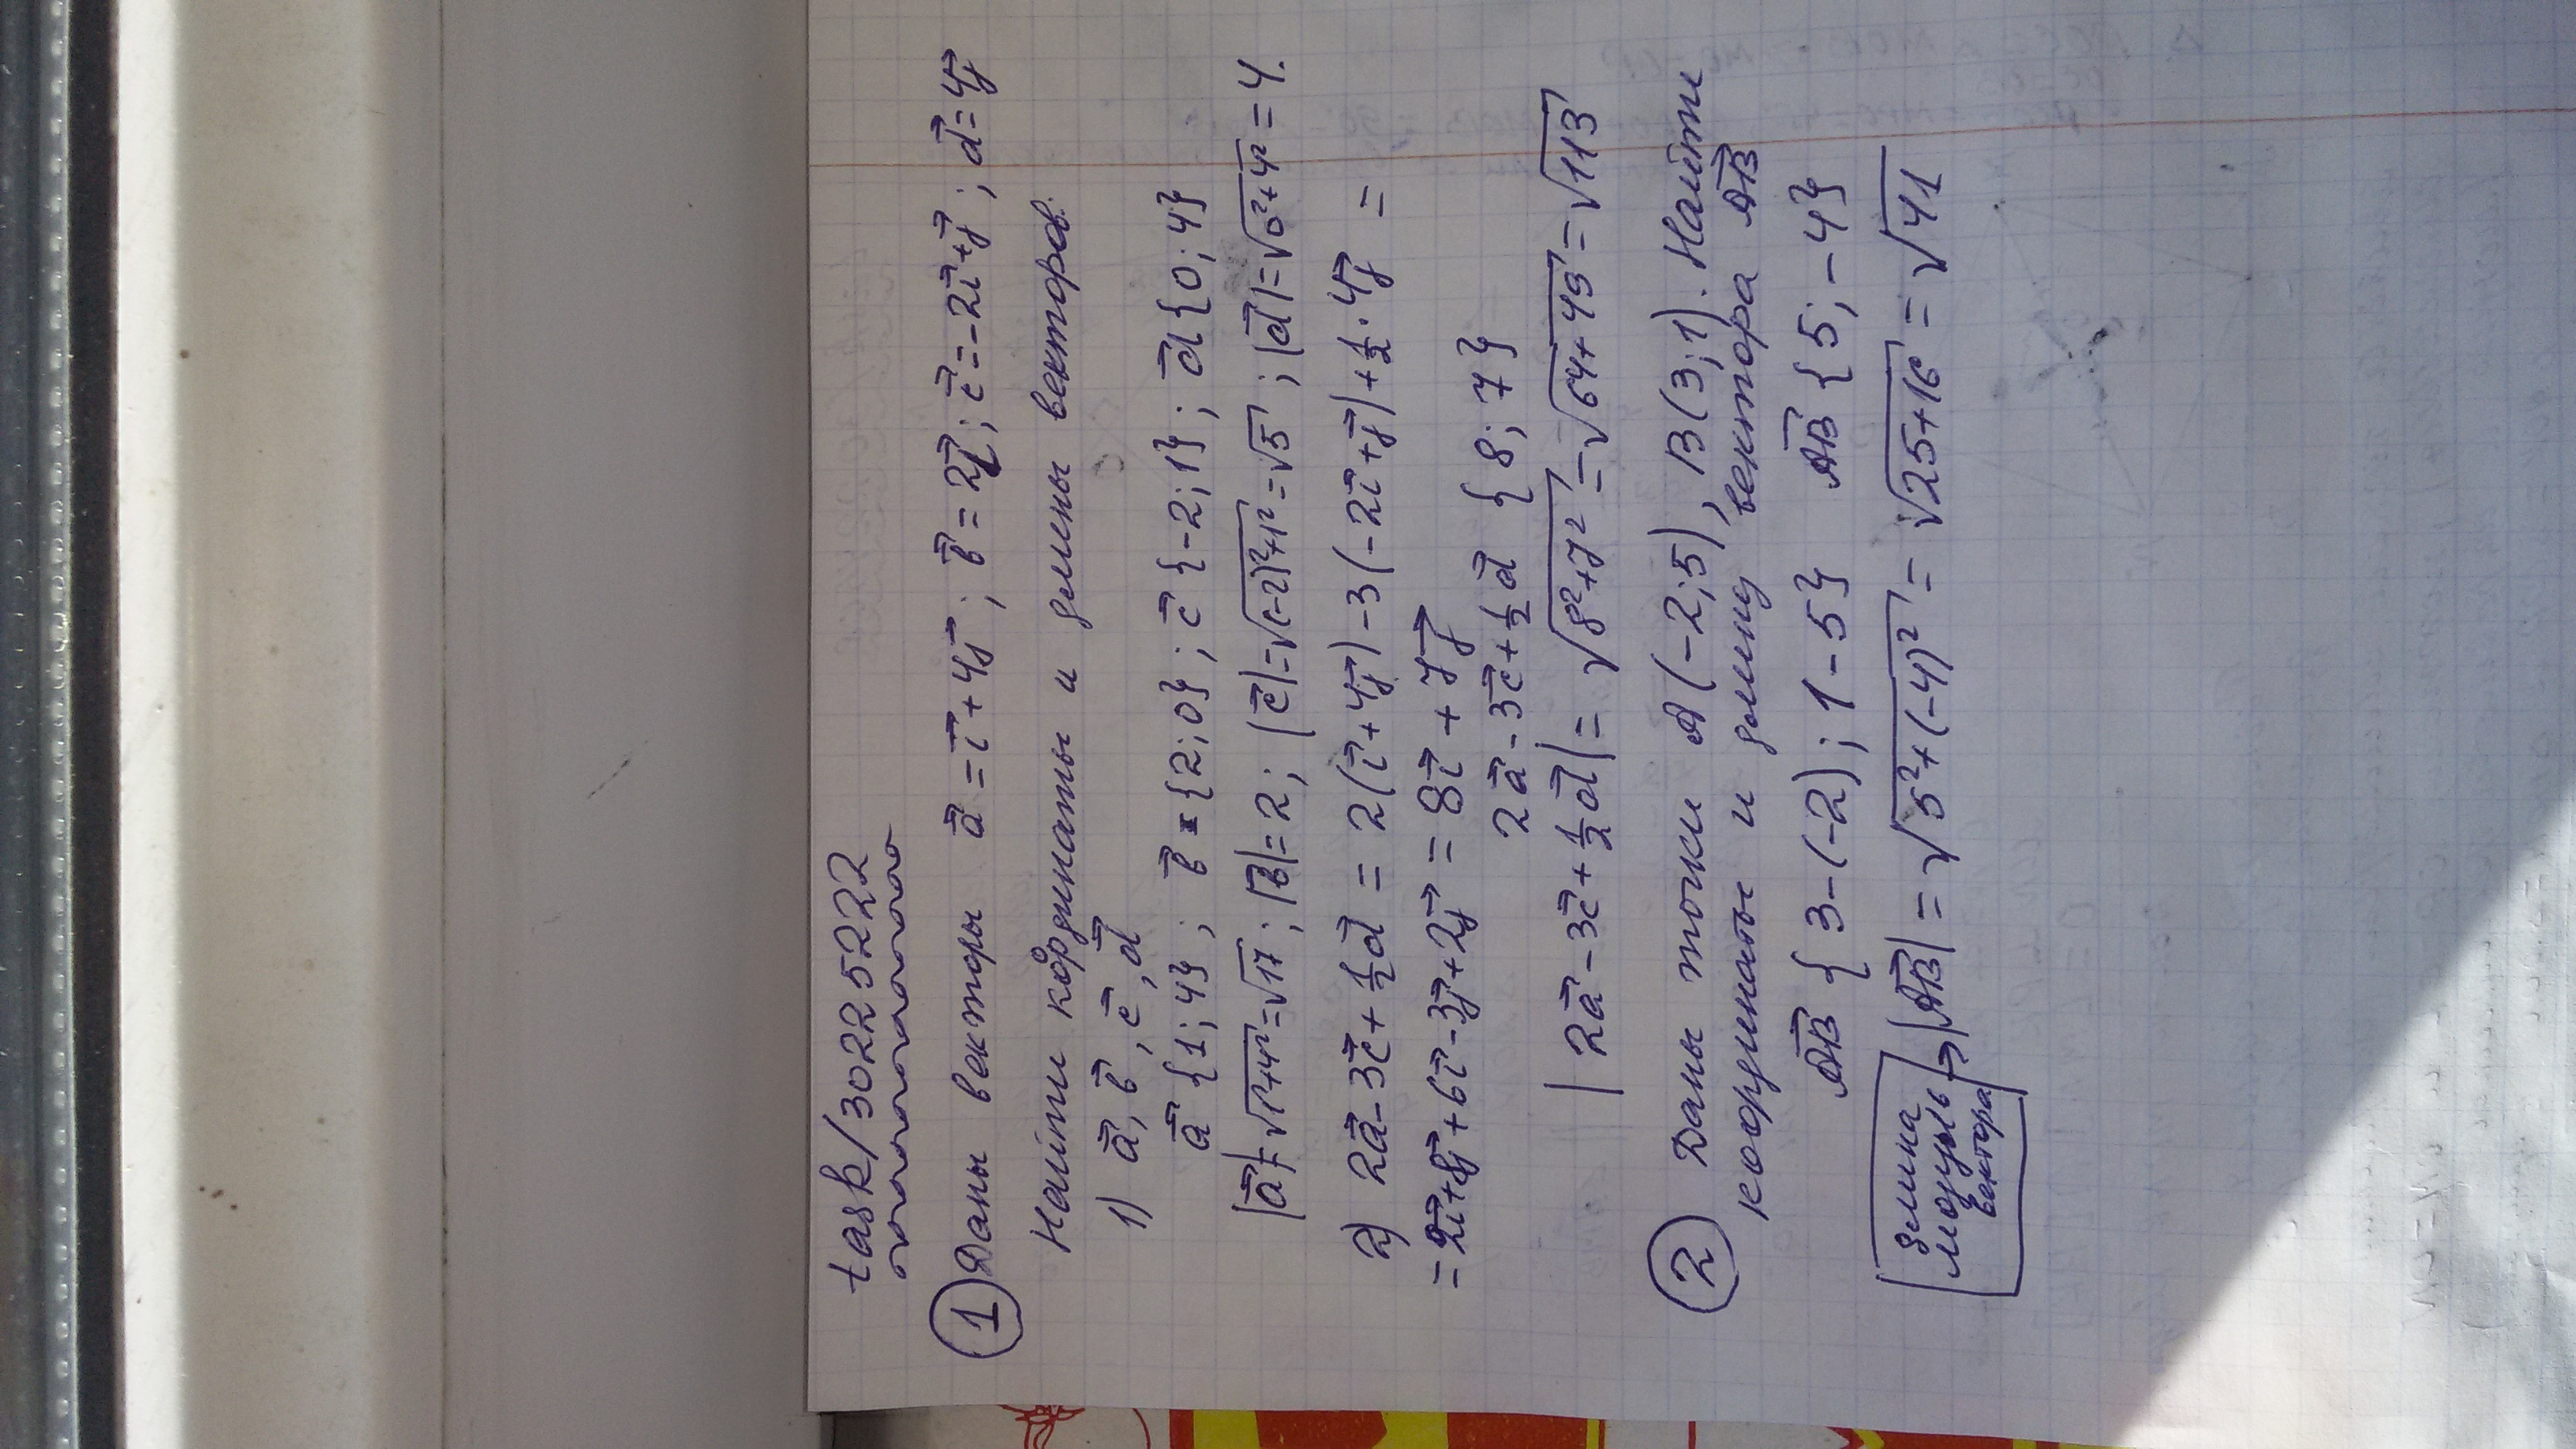 task/30225222
① Даны векторы a⃗ = i⃗ + 4j⃗ ; b⃗ = 2i⃗ ; c⃗ = -2i⃗ + j⃗ ; d⃗ = 4j⃗
Найти координаты и длины векторов.
1) a⃗, b⃗, c⃗, d⃗
a⃗ {1; 4} ; b⃗ = {2; 0} ; c⃗ {-2; 1} ; d⃗ {0; 4}
|a⃗| = √(1²+4²) = √17 ; |b⃗| = 2 ; |c⃗| = √((-2)²+1²) = √5 ; |d⃗| = √(0²+4²) = 4.
2) 2a⃗ - 3c⃗ + 1/2 d⃗ = 2(i⃗ + 4j⃗) - 3(-2i⃗ + j⃗) + 1/2 · 4j⃗ =
= 2i⃗ + 8j⃗ + 6i⃗ - 3j⃗ + 2j⃗ = 8i⃗ + 7j⃗
2a⃗ - 3c⃗ + 1/2 d⃗ {8; 7}
|2a⃗ - 3c⃗ + 1/2 d⃗| = √(8²+7²) = √(64+49) = √113
② Даны точки A(-2; 5), B(3; 1). Найти
координаты и длину вектора AB⃗
AB⃗ {3-(-2); 1-5} AB⃗ {5; -4}
|AB⃗| = √(5²+(-4)²) = √(25+16) = √41
длина
модуль
вектора